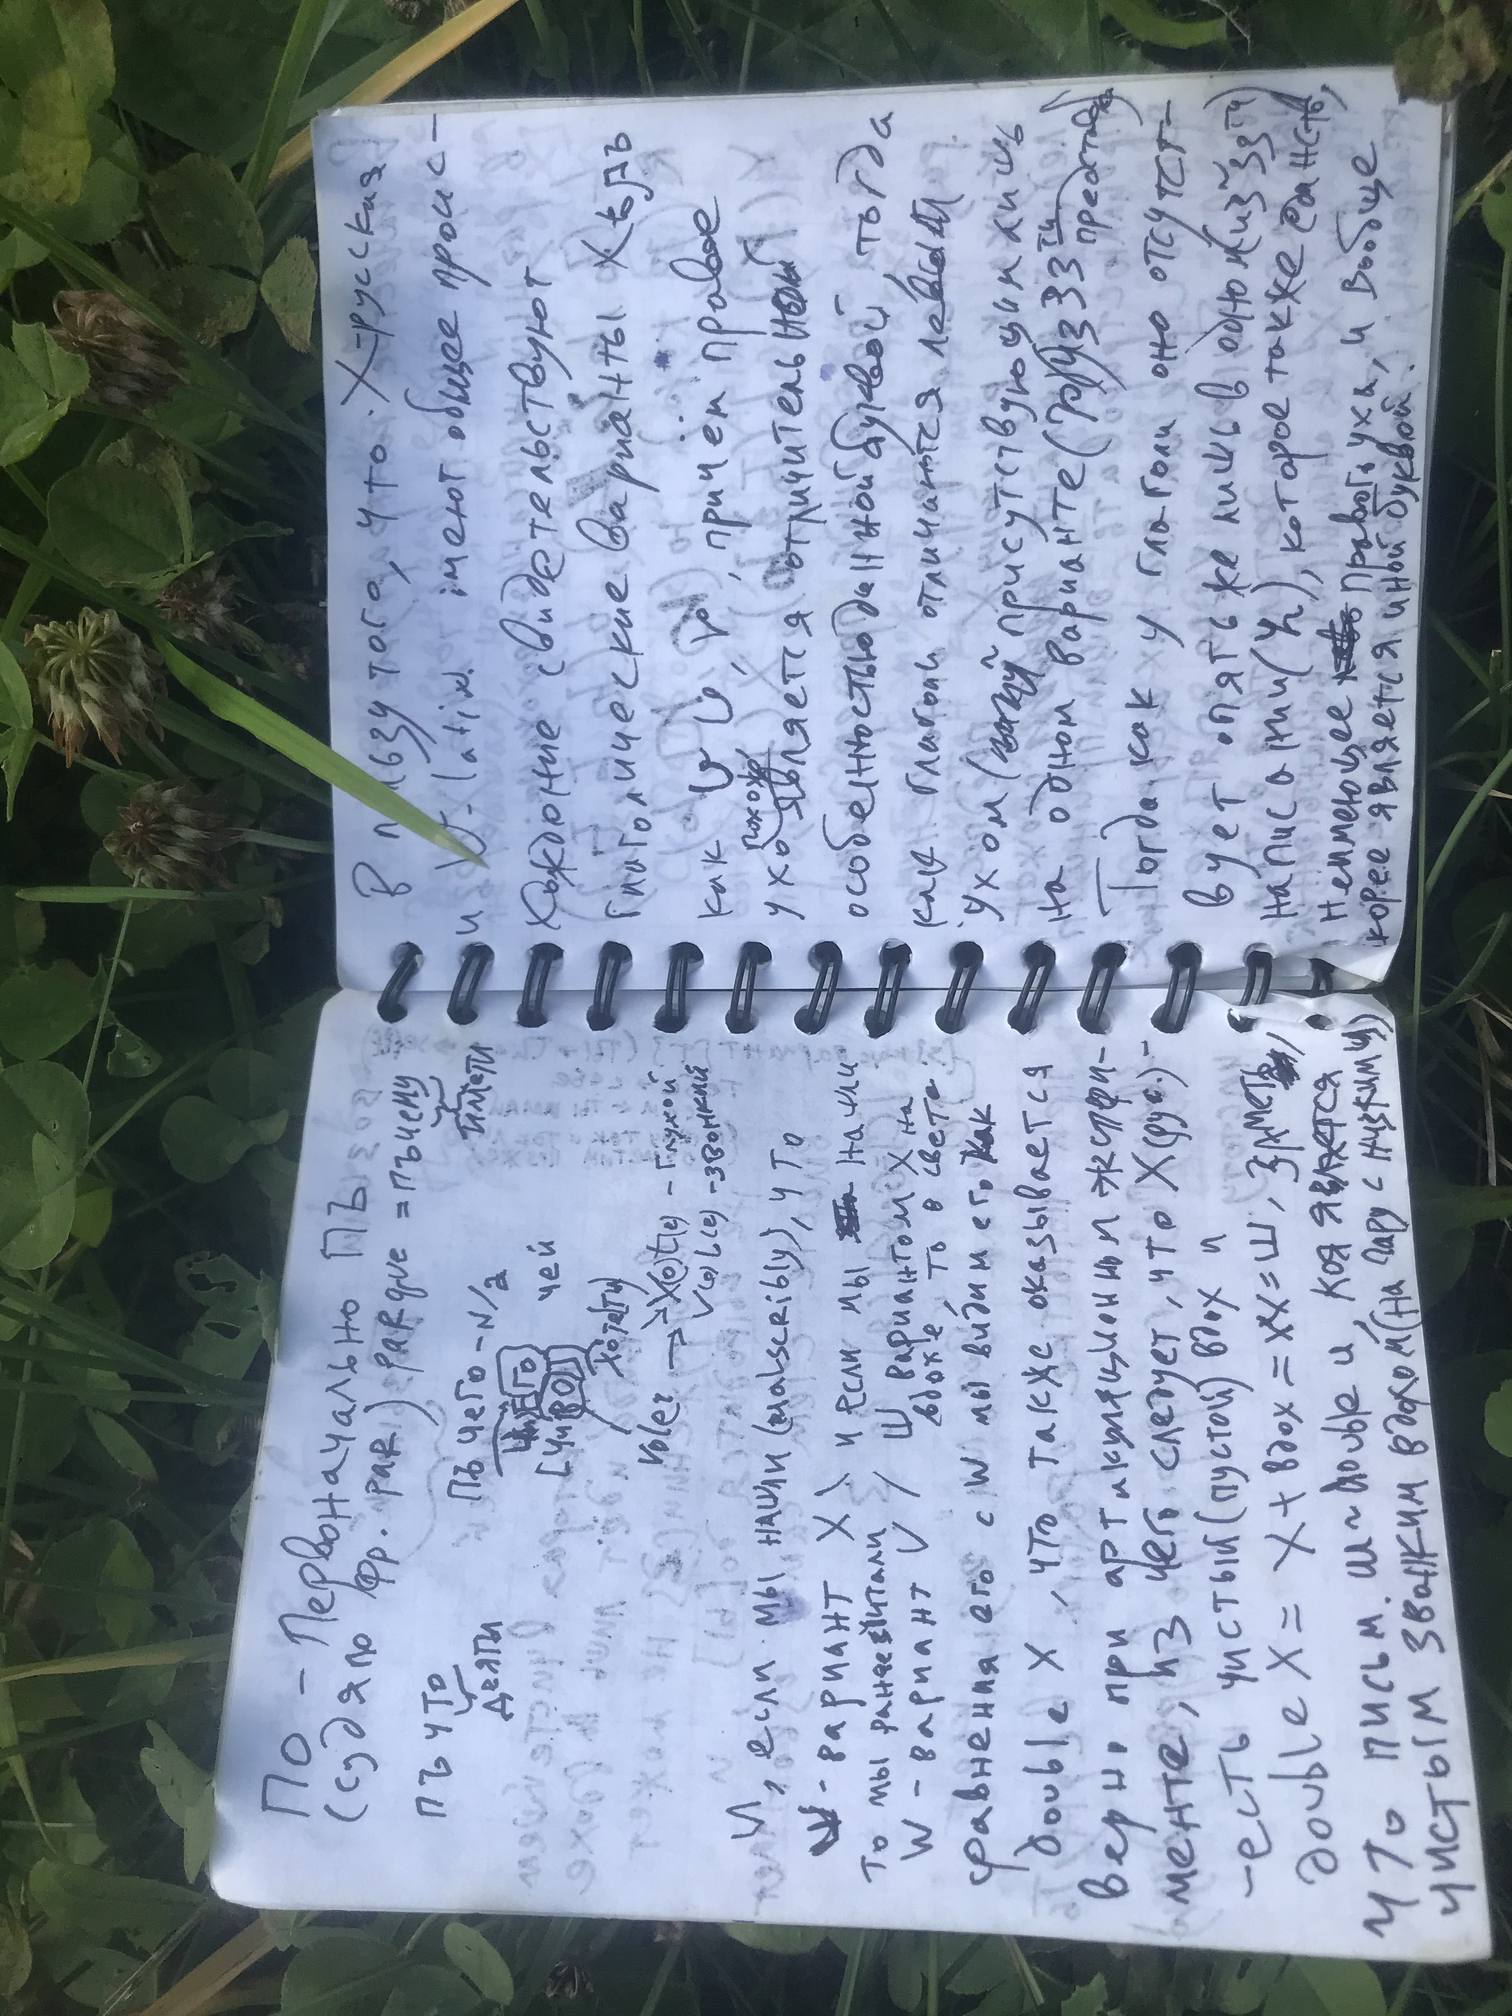 ПО - Первоначально ПЪ
(судя по фр. par) par que = пъчему
тимети
пъ что
деяти
Пъ чего - N/2
чей
его
[чиво]
хоте(ти)
voler → X(o)t(e) - глухой
V(o)L(e) - звонкий
И, если мы нашли (malscribiy), что
- вариант X } и если мы начли
то мы ранее считали / Ш вариантом X на
W - вариант V / вдохе, то в свете
сравнения его с W мы видим его как
double X, что также оказывается
верно при артикуляционном экспри-
менте, из чего следует, что X (рус.) -
- есть чистый (пустой) вдох и
double X = X + вдох = XX = Ш,
что письм. ш ~ double u, коя является
чистым звонким вдохом (на пару с низким ц)
В пользу того, что X-русская
и V-latin. имеют общее проис-
хождение свидетельствуют
глаголические варианты X
как , причем правое
ухо похоже является отличительной
особенностью данной буквой тогда
как глаголи отличаются левым
ухом присутствующим лишь
на одном варианте
Тогда как у глаголи оно отсутст-
вует опять же лишь в одном (из 3)
написании, которое также есть
неимеющее правого уха, и вообще
корее является иной буквой.